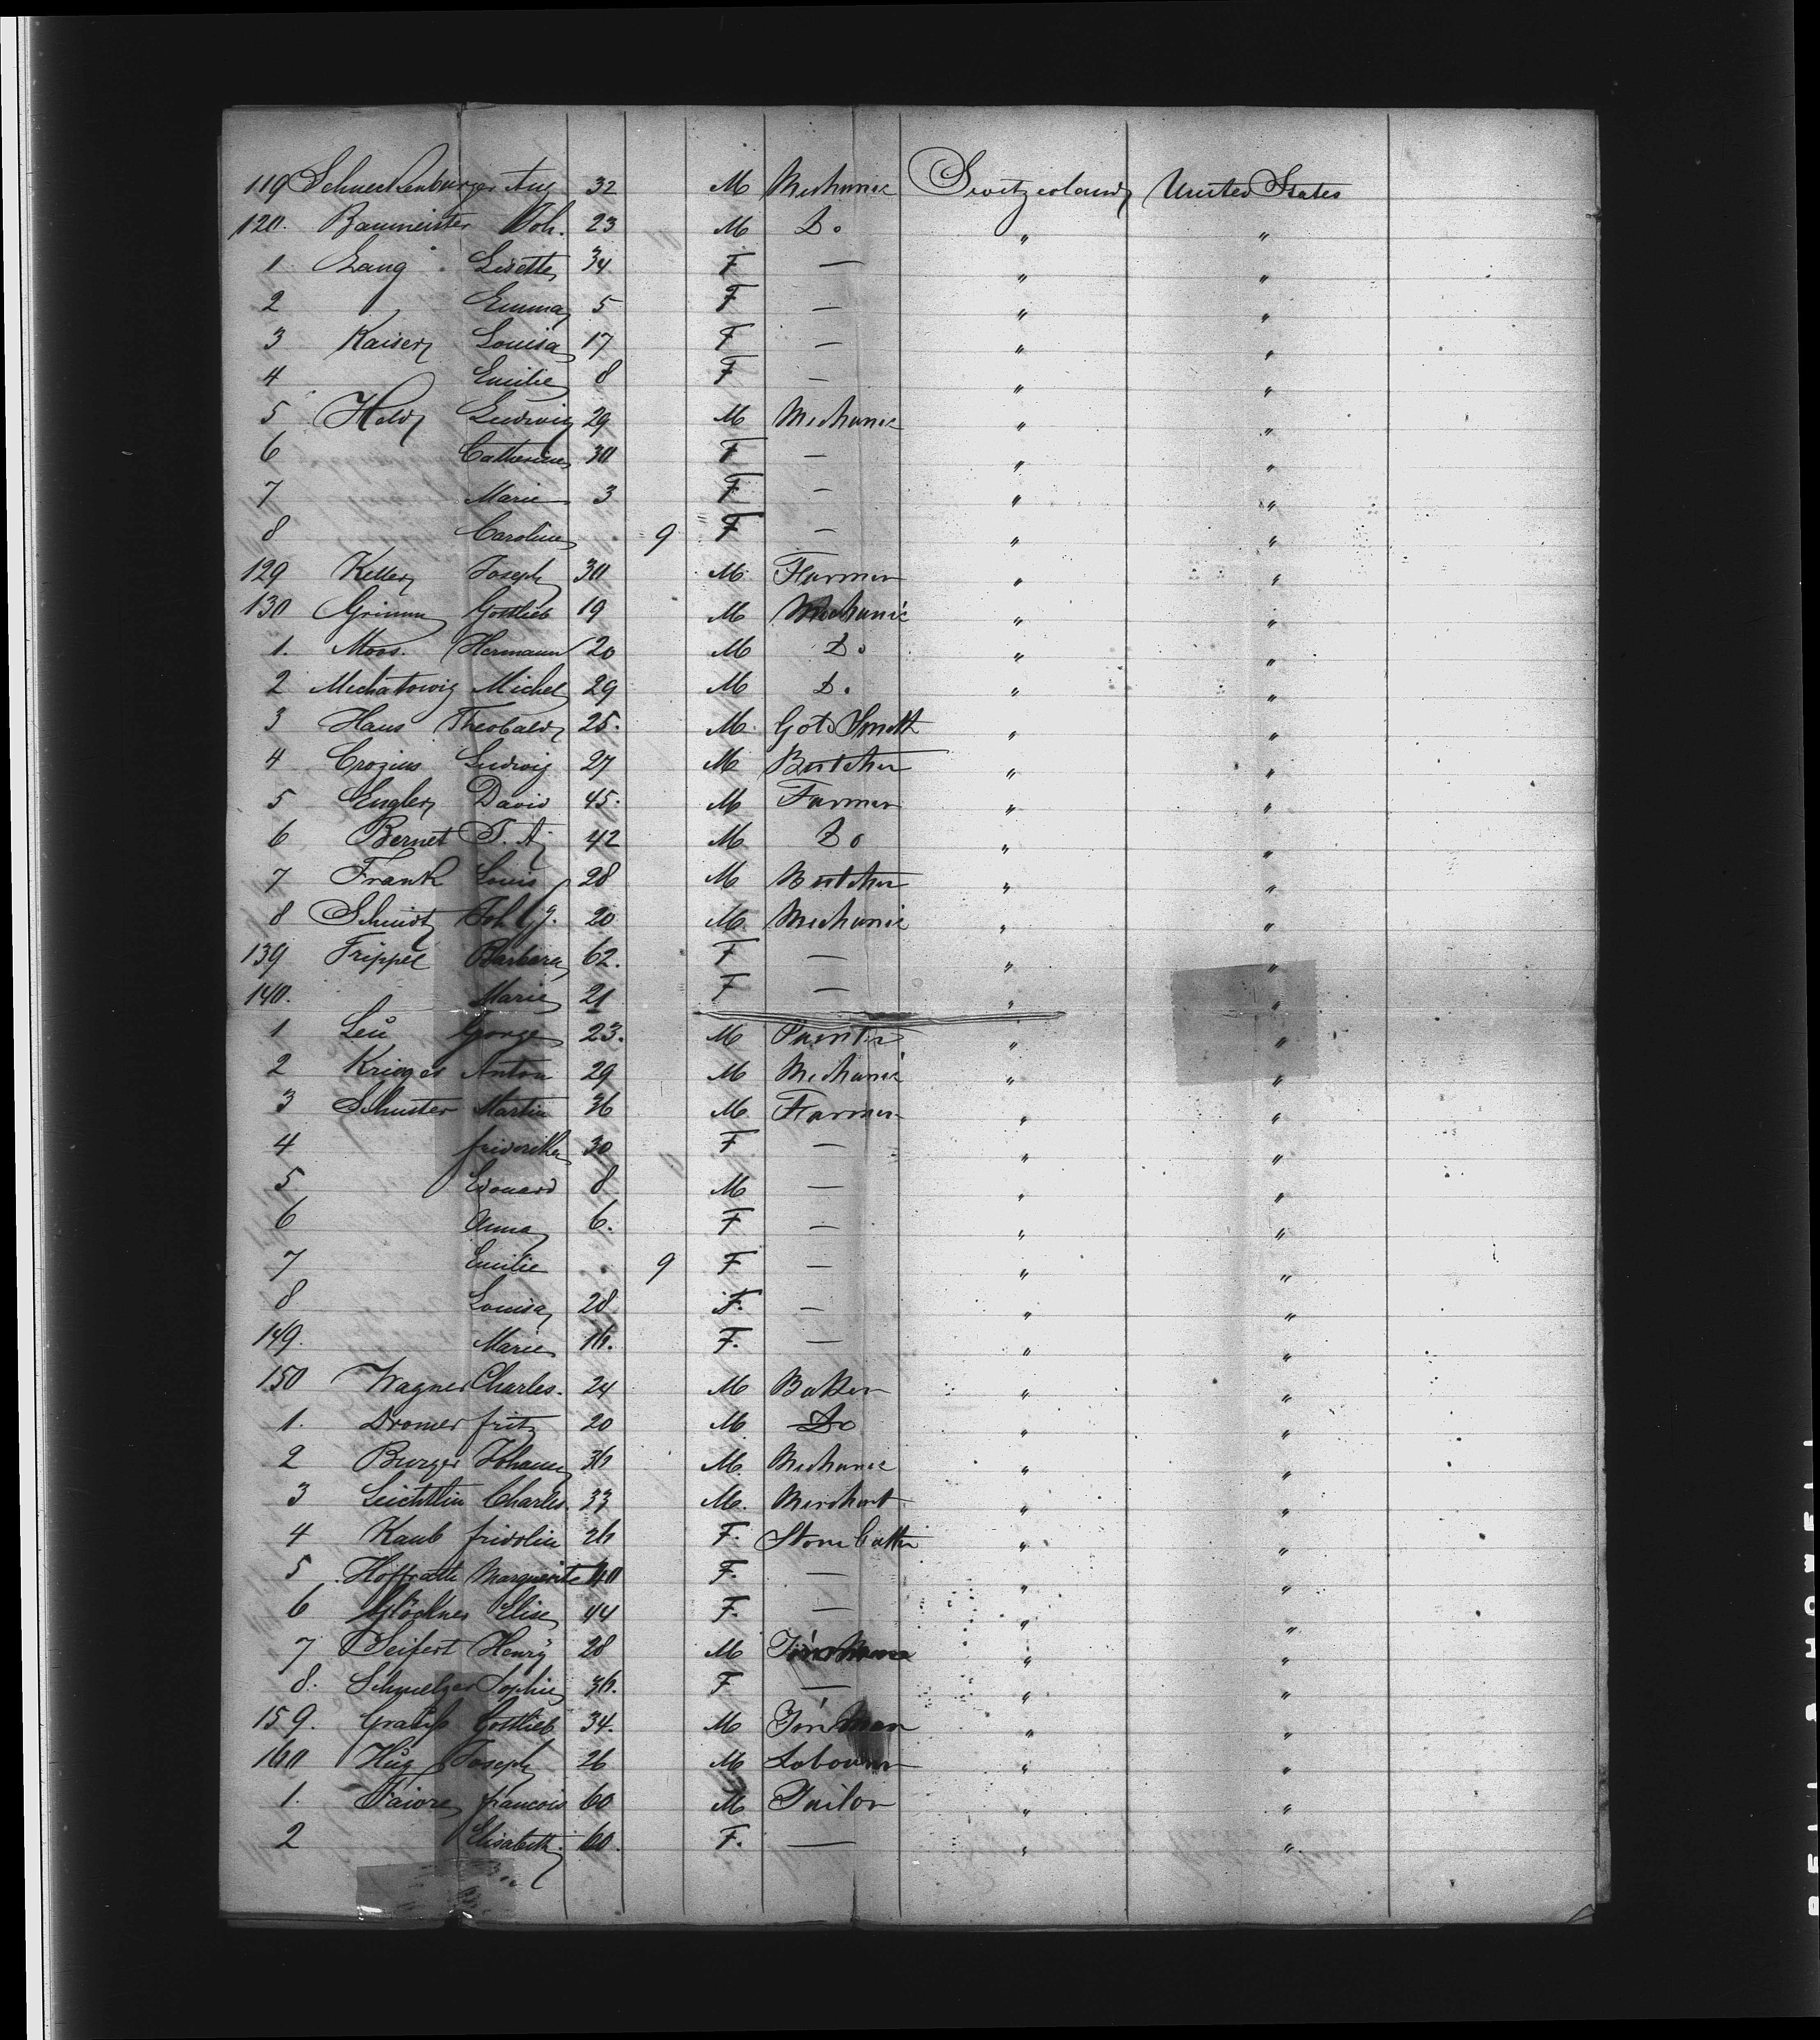 119 Schneckenburger Aug 32 M Mechanic Switzerland United States
120. Baumeister Joh. 23 M Do " "
1 Lang Lisette 34 F — " "
2 Emma 5 F — " "
3 Kaiser Louisa 17 F — " "
4 Emilie 8 F — " "
5 Held Ludwig 29 M Mechanic " "
6 Catherine 30 F — " "
7 Marie 3 F — " "
8 Caroline . 9 F — " "
129 Keller Joseph 30 M Farmer " "
130 Grimm Gottlieb 19 M Mechanic " "
1. Moos. Hermann 20 M Do " "
2 Mechatowig Michel 29 M Do " "
3 Haus Theobald 25. M. Gold Smith " "
4 Crozius Ludwig 27 M Butcher " "
5 Engler David 45. M Farmer " "
6 Bernet 42 M Do " "
7 Frank Louis 28 M Butcher " "
8 Schmidt Joh G. 20 M. Mechanic " "
139 Frippel Barbara 62. F — " "
140. Marie 21 F — " "
1 Leŭ George 23. M Painter " "
2 Krieger Anton 29 M Mechanic " "
3 Schuster Martin 36 M Farmer " "
4 fridorika 30 F — " "
5 Edouard 8 M — " "
6 Anna 6. F — " "
7 Emilie . 9 F — " "
8 Louisa 28 F. — " "
149. Marie 16. F. — " "
150 Wagner Charles. 24 M Baker " "
1. Dromer fritz 20 M. Do " "
2 Burger Johann 36 M. Mechanic " "
3 Leichtlin Charles 33 M. Merchant " "
4 Kaub fridolin 26 F. Stone Cutter " "
5 Hoffrath Marguerite 40 F. — " "
6 Glöckner Elise 44 F. — " "
7 Seifert Henry 28 M " "
8. Schmelzer Sophie 36. F — " "
159. Gottlieb 34. M " "
160 Hŭg Joseph 26 M Labourer " "
1. Faivre francois 60 M Tailor " "
2 Elisabeth. 60. F. — " "